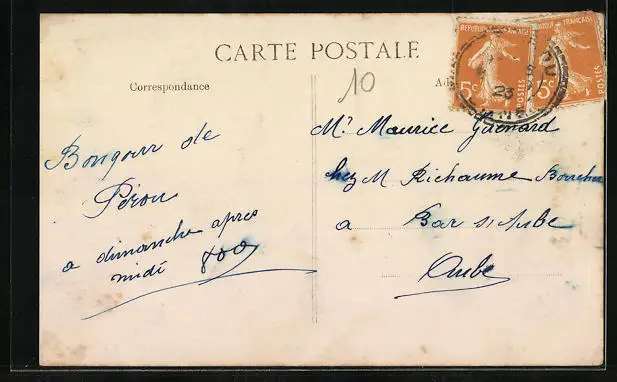 CARTE POSTALE
Correspondance
10
REPUBLIQUE FRANÇAISE
5c
POSTES
FRANÇAISE
5c
POSTES
23
Bonjour de
Péron
a dimanche apres
midi
Mr Maurice Guenard
chez M. Richaume Boucher
a Bar s/ Aube
Aube